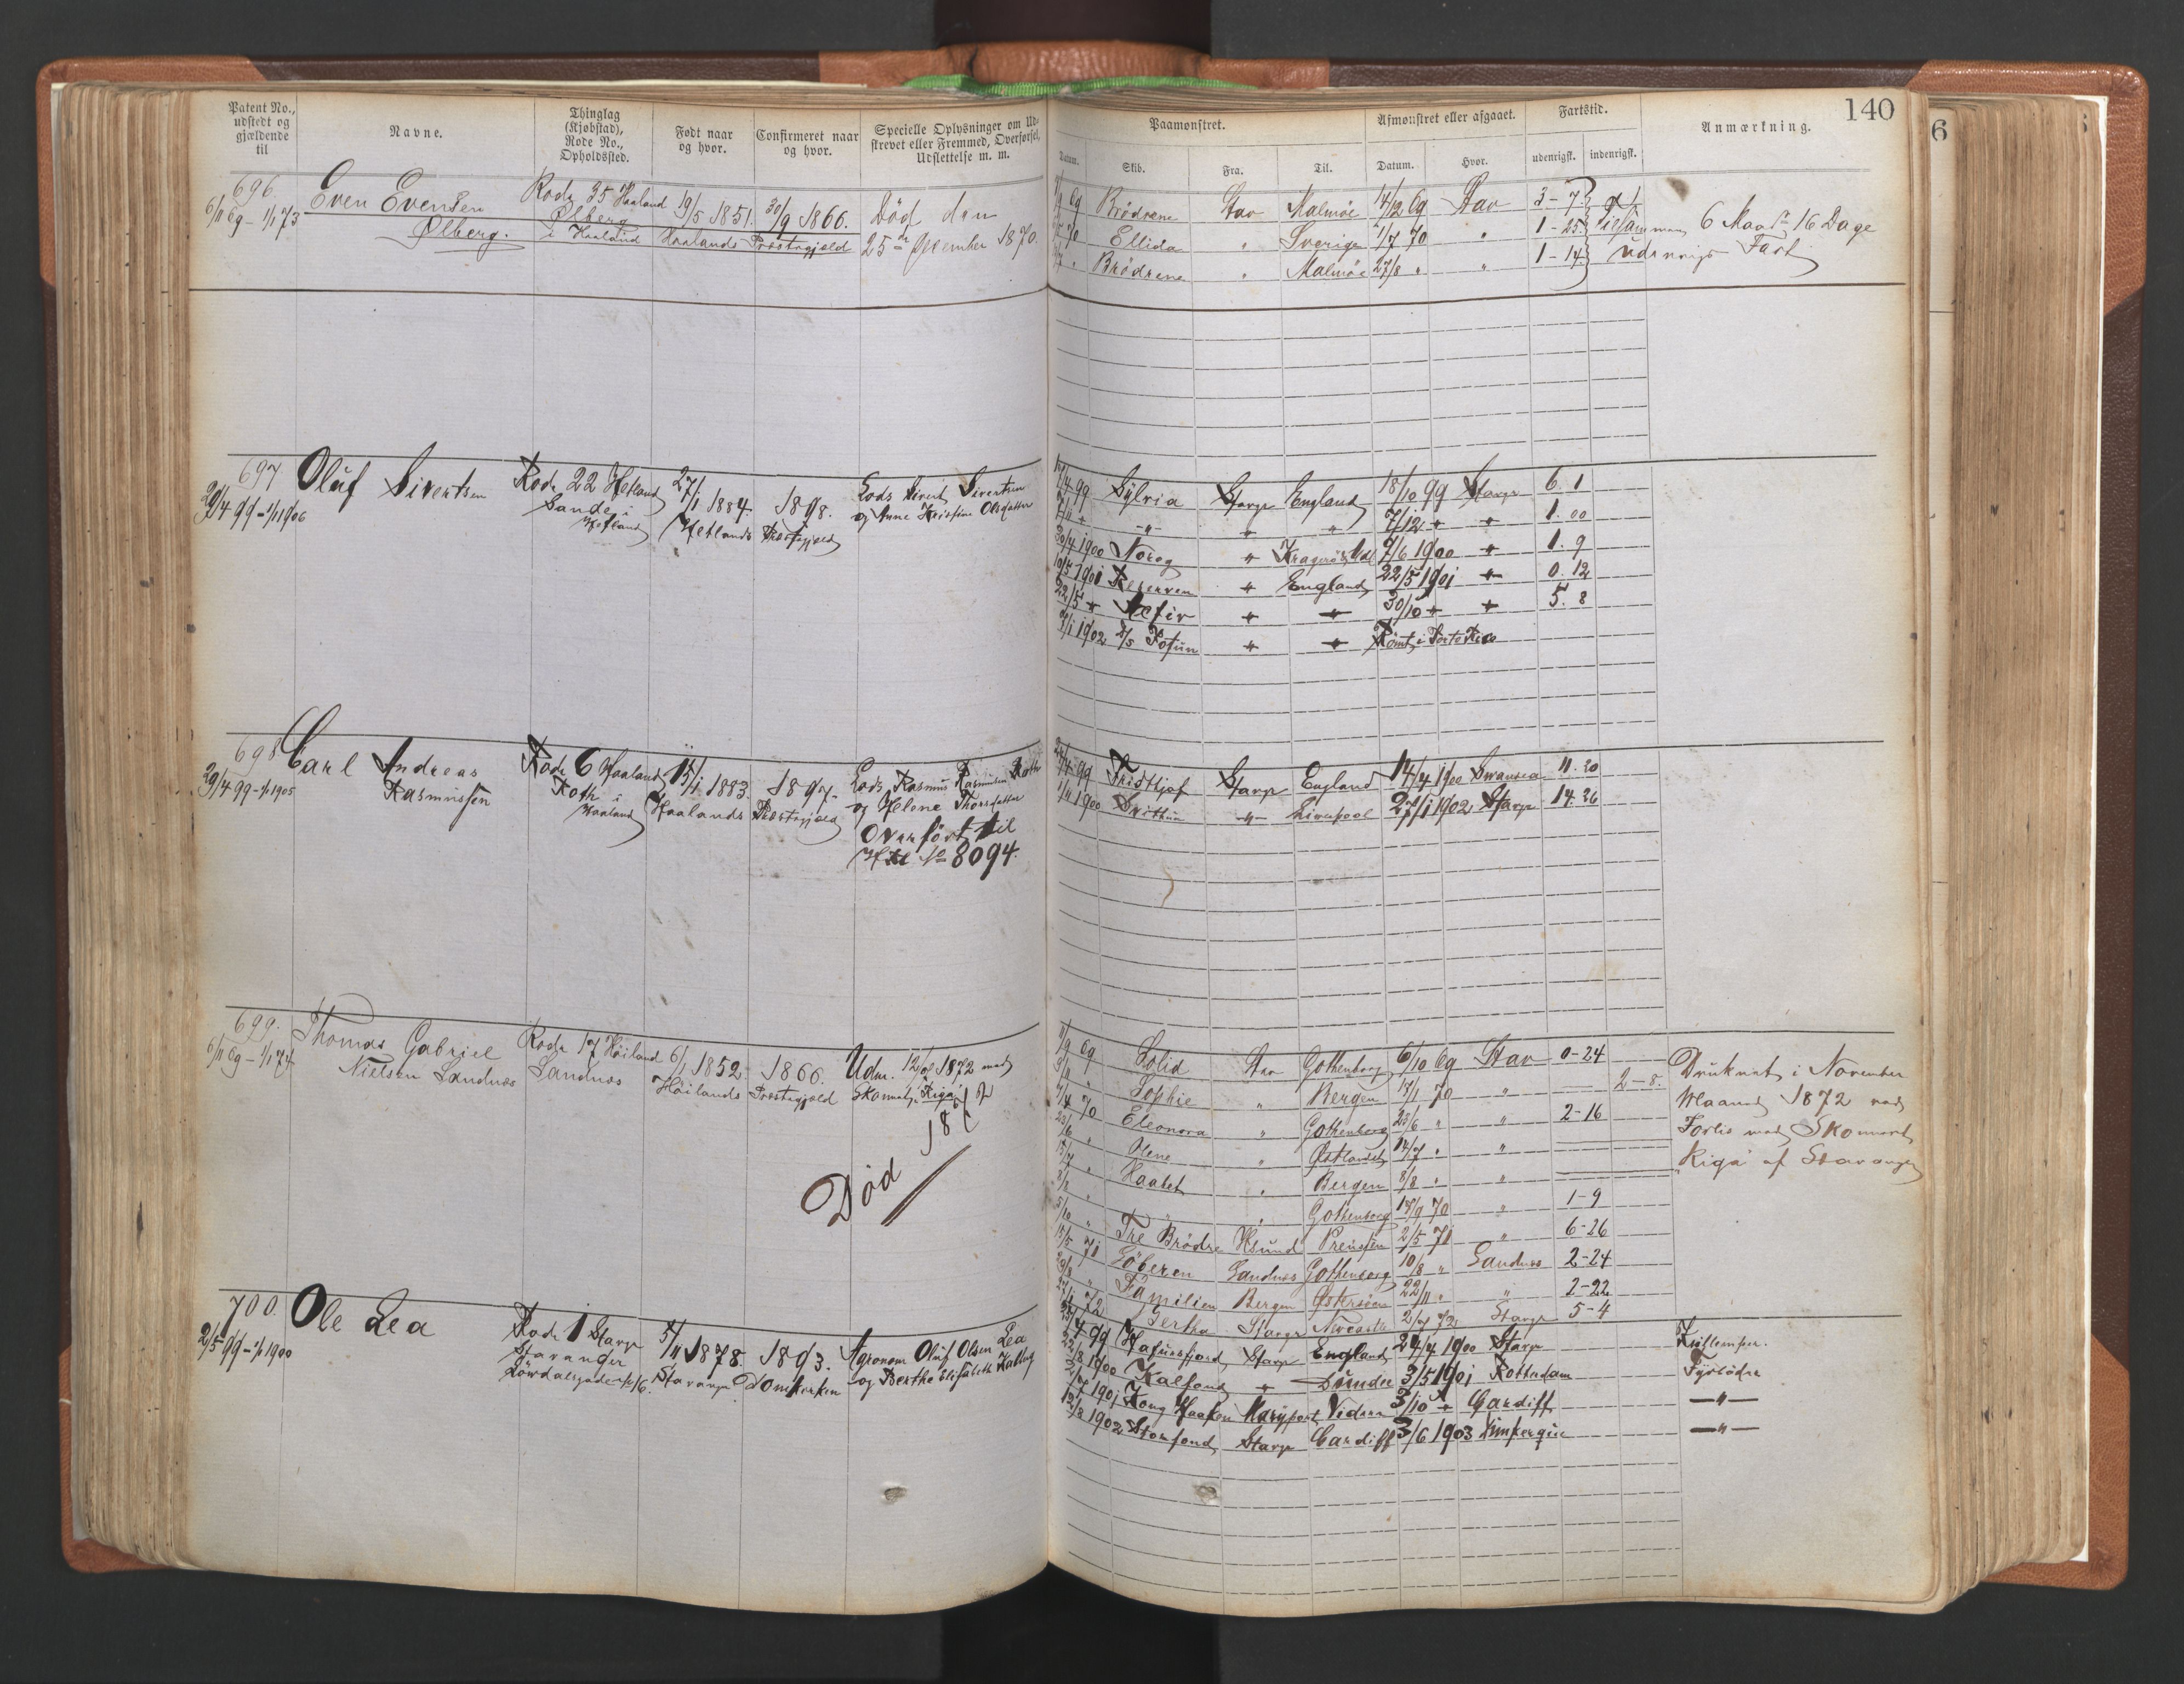 140
6
Patent No., udstedt og gjældende til
Navne.
Thinglag (Kjøbstad), Rode No., Opholdssted.
Født naar og hvor.
Confirmeret naar og hvor.
Specielle Oplysninger om Udskrevet eller Fremmed, Overførsel, Udslettelse m. m.
Paamønstret.
Afmønstret eller afgaaet.
Fartstid.
Anmærkning.
Datum.
Skib.
Fra.
Til.
Datum.
Hvor.
udenrigsk.
indenrigsk.
696.
6/11 69 – 1/1 73
Even Evensen
Ølberg.
Rode 35 Haaland
Ølberg
i Haaland
19/5 1851.
30/9 1866.
Haalands Præstegjæld
Død den
25de December 1870.
69 Brödrene Stav Malmöe 14/12 69 Stav 3 – 7
70 Ellida " Sverige 1/7 70 " 1 – 25
" Brödrene " Malmöe 27/8 " " 1 – 14
Tilsammen 6 Maar 16 Dage
udenrigs Fart
697.
29/4 99 – 1/1 1906
Oluf Sivertsen
Rode 22 Hetland
Sande i
Hetland
27/1 1884.
1898.
Hetlands Præstegjæld
Lods Sivert Sivertsen
og Anne Kristine Olsdatter
99 Sylvia Stavgr England 18/10 99 Stavgr 6. 1
-"- " " 7/12 " " 1. 00
30/4 1900 Noreg " Kragerö 9/6 1900 " 1. 9
10/5 1901 Reserven " England 22/5 1901 " 0. 12
22/5 " Sefir " " 30/10 " " 5. 8
1902 S/S Jotun " " Römt i Porto Rico
698
29/4 99 – 1/1 1905
Carl Andreas
Rasmussen
Rode 6 Haaland
Roth i
Haaland
15/1 1883.
1897.
Haalands Præstegjæld
Lods Rasmus Rasmussen Roth
og Helene Thorsdatter
Overfört til
No 8094.
99 Fridttjof Stavgr England 14/4 1900 Swansea 11. 20
1900 -"- Liverpool 27/1 1902 Stavgr 14. 26
699.
6/11 69 – 1/1 74
Thomas Gabriel
Nielsen Sandnes
Rode 17 Höiland
Sandnes
6/1 1852.
1866.
Höilands Præstegjæld
Udm. 12/ 1872 med
Skonnert "Riga"
Død 18
69 Solid Stav Gothenborg 6/10 69 Stav 0 – 24
" Sophie " Bergen 17/1 70 " 2 – 8.
70 Eleonora " Gothenborg 23/6 " " 2 – 16
" Olene " Østlandet 14/7 " "
" Haabet " Bergen 8/8 " "
" " Gothenborg 18/9 70 " 1 – 9
" Tre Brödre Preussen 2/5 71 " 6 – 26
71 Söberen Sandnes Gothenborg 10/8 " Sandnes 2 – 24
" Familien Bergen Østersöen 22/11 " " 2 – 22
72 Gertha Stavgr Newcastle 2/7 72 Stavgr 5 – 4
Druknet i November
Maaned 1872 ved
Forlis med Skonnert
"Riga" af Stavanger
700.
2/5 99 – 1/1 1900
Ole Lea
Rode 1 Stavgr
Stavanger
Lövdalsgade No 16.
5/11 1878.
1893.
Stavanger Domkirken
Agronom Oluf Olsen Lea
og Berthe Elisabeth
99 Hafursfjord Stavgr England 24/4 1900 Stavgr
1900 Kalfond " Dundee 3/5 1901 Rotterdam
1901 Kong Haakon Maryport 3/10 " Cardiff
1902 Storfond Stavgr Cardiff 3/6 1903 Dunkerque
Kullemper.
Fyrböder
-"-
-"-